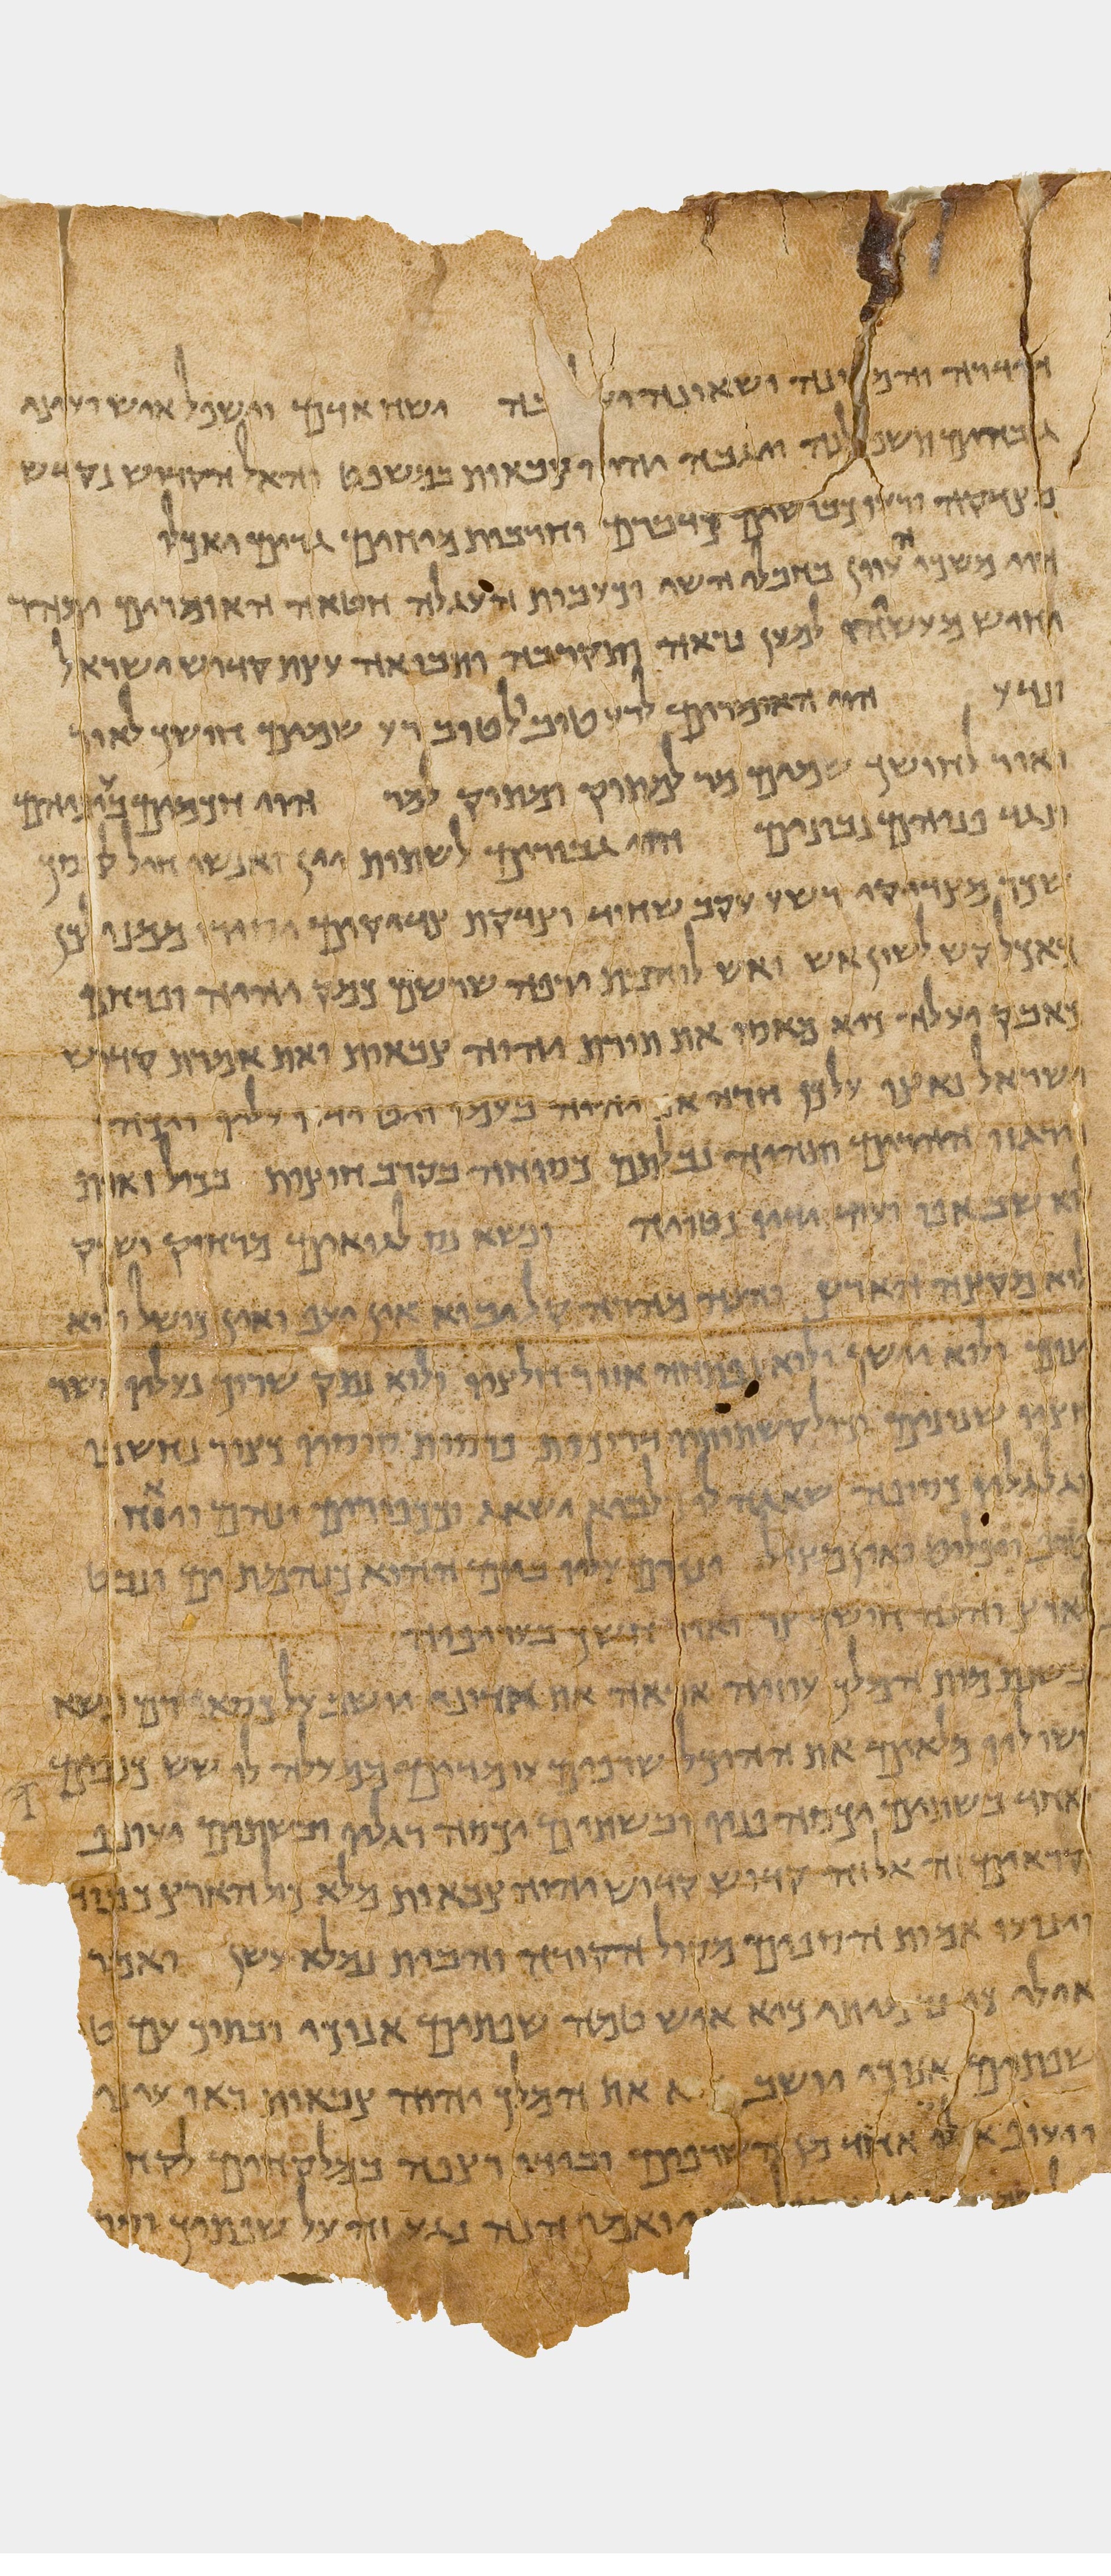 והדרה והמונה ושאונה וע בה וישח אדם וישפל איש ועיני
גבהים תשפלנה ויגבה יהוה צבאות במשפט והאל הקדוש נקדש
בצדקה ורעו כבושים כדברם וחרבות מיחים גרים יאכלו
הוי משכי העוון בחבלי השי וכעבות העגלה חטאה האומרים ימהר
יחיש מעשיהו למען נראה ותקרבה ותבואה עצת קדוש ישראל
ונדע הוי האומרים לרע טוב ולטוב רע שמים חושך לאור
ואור לחושך שמים מר למתוק ומתוק למר הוי חכמים בעיניהם
ונגד פניהם נבונים הוי גבורים לשתות יין ואנשי חיל למסך
שכר מצדיקי רשע עקב שחוד וצדקת צדיקים יסירו ממנו לכן
כאכל קש לשון אש ואש לוהבת ירפה שרשם כמק יהיה ופרחם
כאבק יעלה כיא מאסו את תורת יהוה צבאות ואת אמרת קדוש
ישראל נאצו על כן חרה אף יהוה בעמו ויט ידיו עליו ויכהו
וירגזו ההרים ותהיה נבלתם כסוחה בקרב חוצות בכול זואת
לוא שב אפו ועוד ידיו נטויה ונשא נס לגואים מרחוק ושרק
לוא מקצה הארץ והנה מהרה קל יבוא אין עיף ואין כושל ולוא
ינום ולוא יישן ולוא נפתח אזור חלציו ולוא נתק שרוך נעליו אשר
חציו שנונים וכול קשתותיו דרוכות פרסות סוסיו כצור נחשבו
וגלגליו כסופה שאגה לו כלביא ישאג וככפירים ינהם ויאחז
טרף ויפליט ואין מציל וינהם עליו ביום ההוא כנהמת ים ונבט
לארץ והנה חושך צר ואור חשך בערפיה
בשנת מות המלך עוזיה אראה את אדוני יושב על כסא רם ונשא
ושוליו מלאים את ההיכל שרפים עומדים ממעלה לו שש כנפים
לאחד בשתים יכסה פניו ובשתים יכסה רגליו ובשתים יעופף
וקראים זה אל זה קדוש קדוש יהוה צבאות מלא כול הארץ כבודו
וינועו אמות הספים מקול הקורה והבית נמלא עשן ואמר
אילי כי נדמיתי כיא איש טמה שפתים אנוכי ובתוך עם ט
שפתים אנוכי יושב את המלך יהוה צבאות ראו עיני
ויעוף אלי אחד מן השרפים ובידו רצפה במלקחים לקח
ויאמר הנה נגע זה על שפתיך וסר